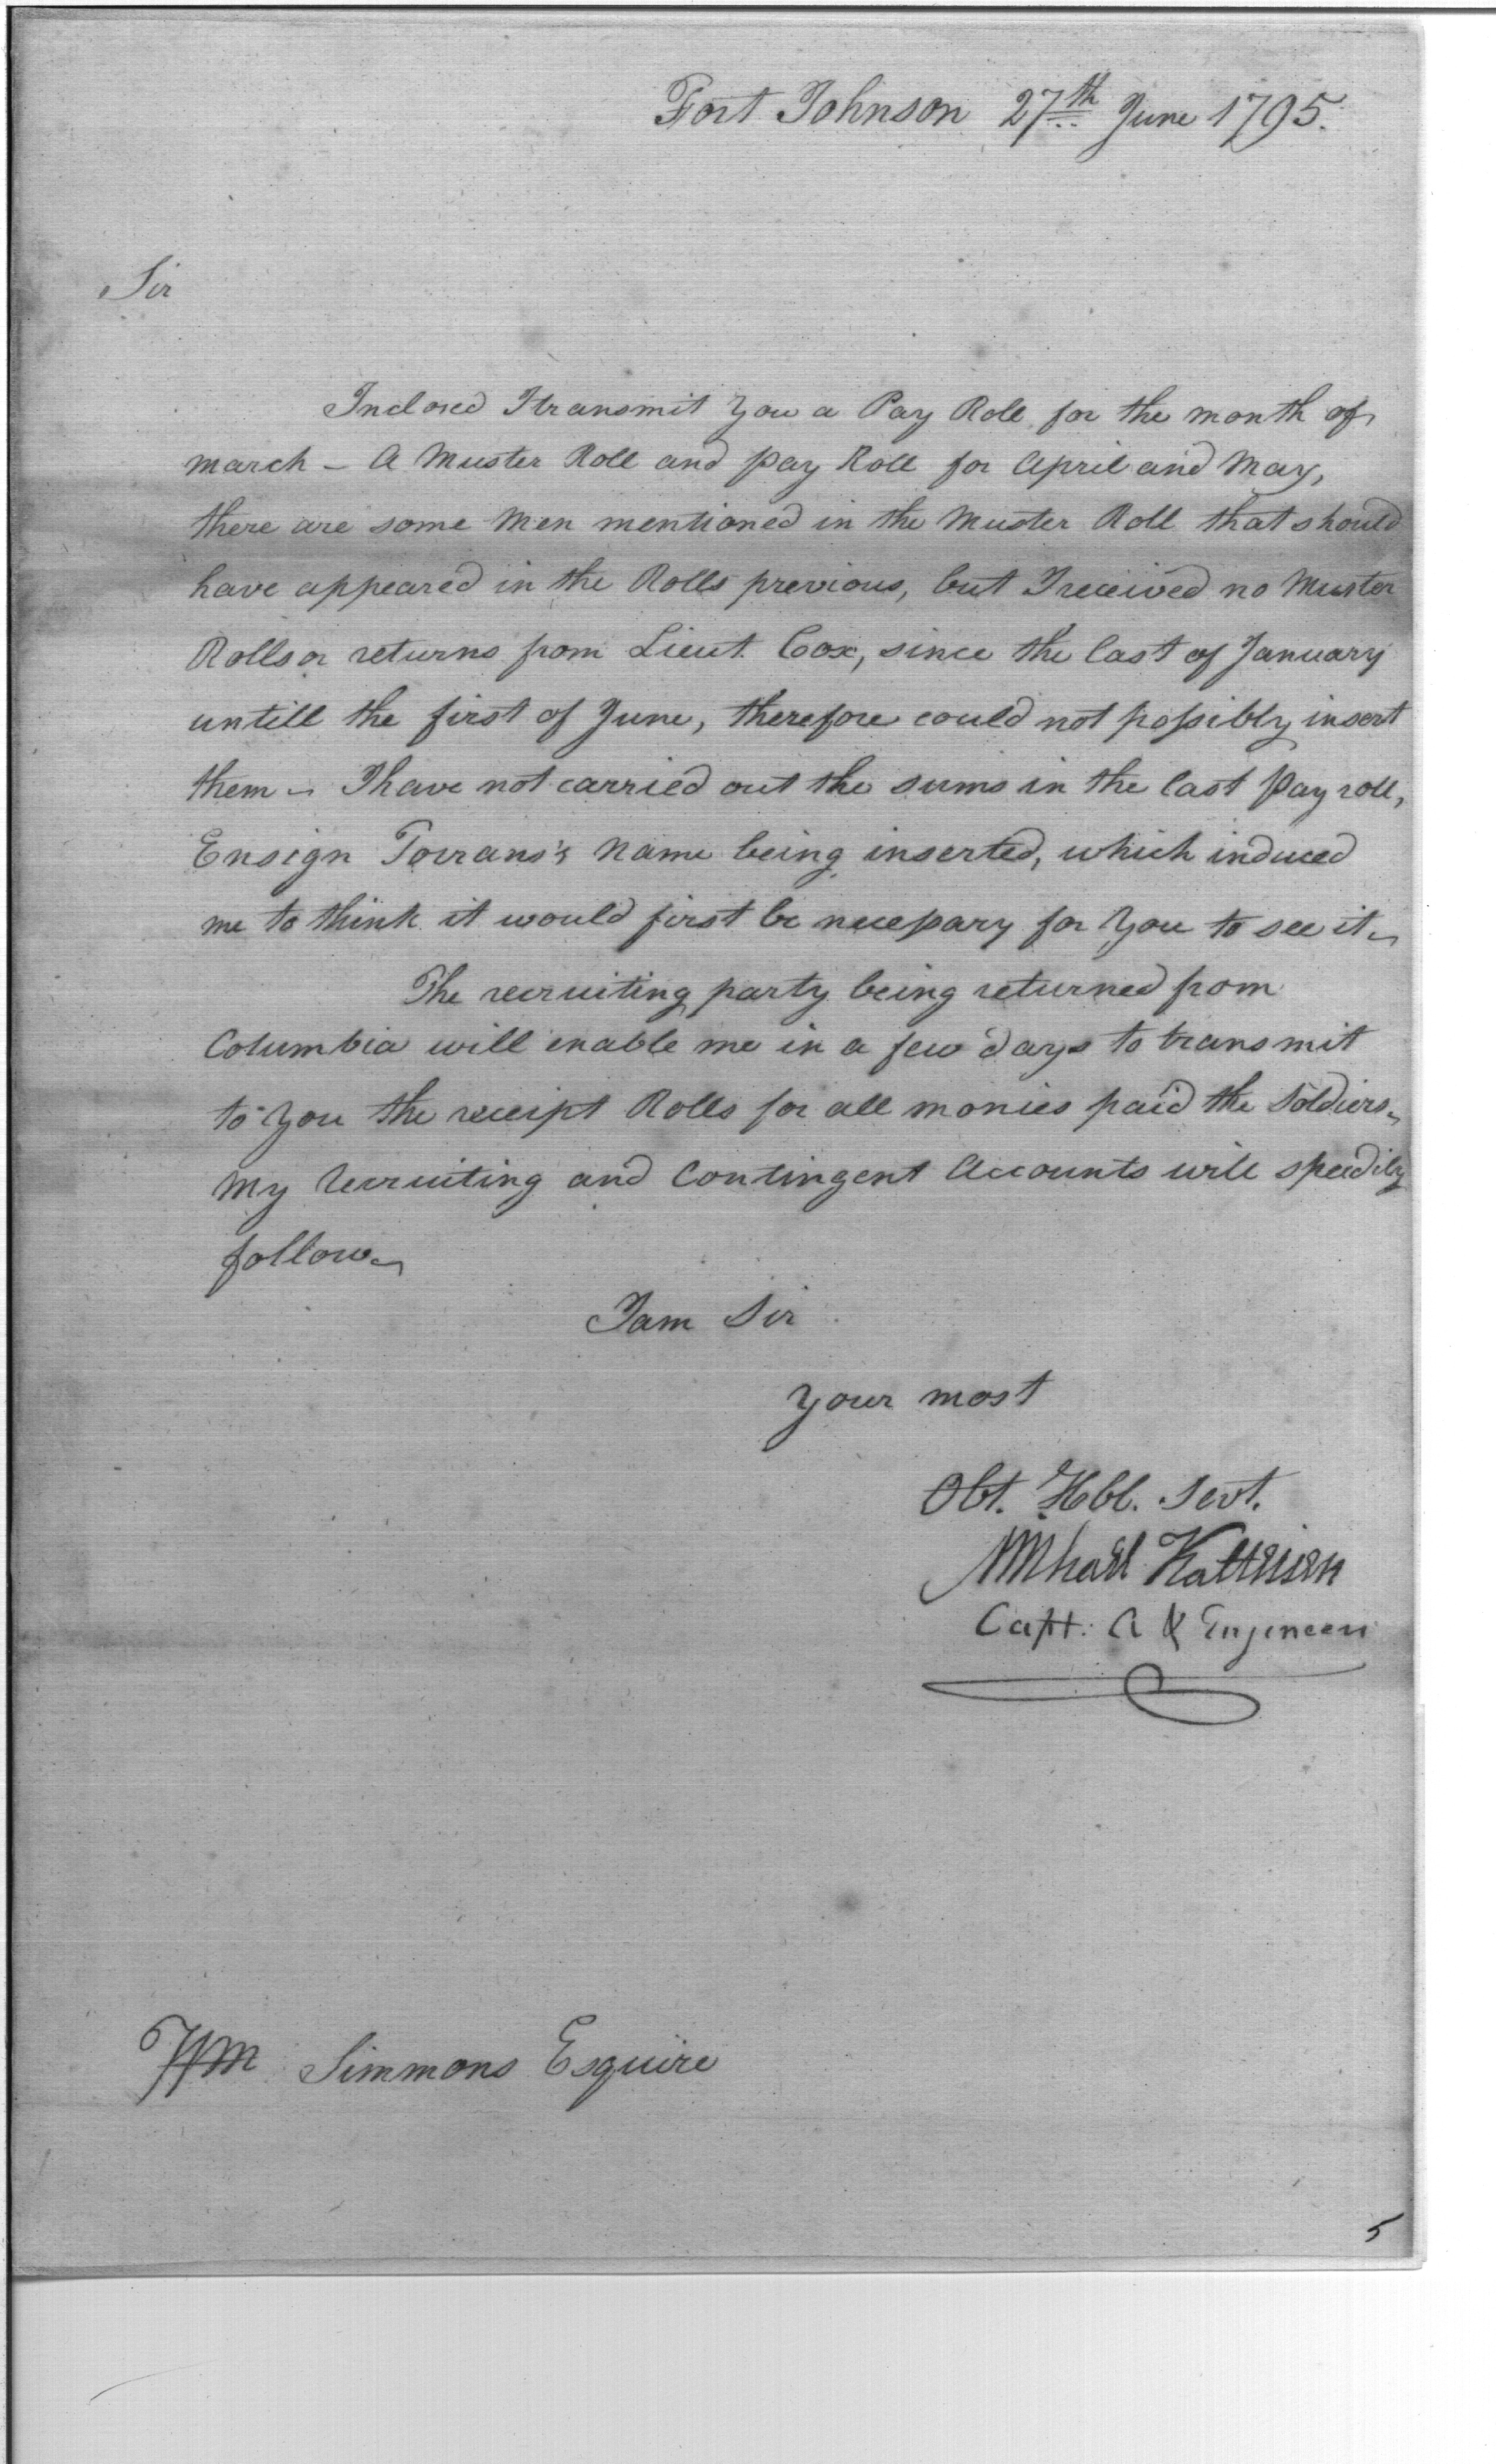 Fort Johnson 27th June 1795.
Sir
Inclosed I transmit You a Pay Roll for the month of
march - A Muster Roll and pay Roll for April and May,
there are some Men mentioned in the Muster Roll that should
have appeared in the Rolls previous, but I received no Muster
Rolls or returns from Lieut. Cox, since the last of January
untill the first of June, therefore could not possibly insert
them - I have not carried out the sums in the last Pay roll,
Ensign Torrans's Name being inserted, which induced
me to think it would first be necessary for You to see it -
The recruiting party being returned from
Columbia will enable me in a few days to transmit
to You the receipt Rolls for all monies paid the Soldiers -
My recruiting and Contingent Accounts will speedily
follow -
I am Sir
Your most
Obt. Hbl. Servt.
Michael Kalteisen
Capt: A & Engineers
Wm Simmons Esquire
5